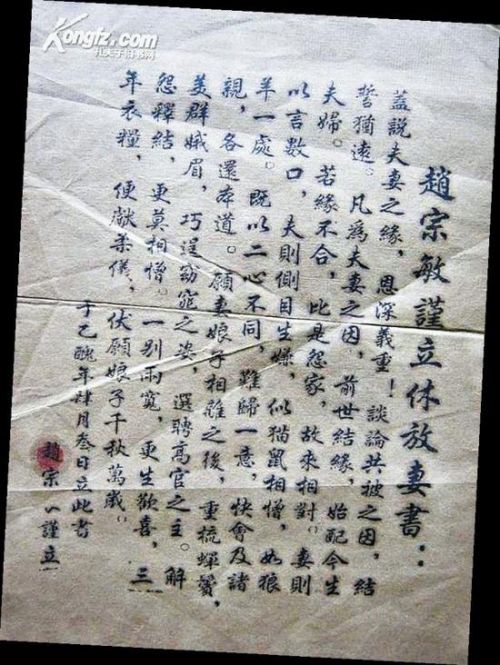 Kongfz.com
孔夫子旧书网
趙宗敏謹立休放妻書：
蓋說夫妻之緣，恩深義重！談論共被之因，結
誓猶遠。凡為夫妻之因，前世結緣，始配今生
夫婦。若緣不合，比是怨家，故來相對。妻則
以言數口，夫則側目生嫌，似貓鼠相憎，如狼
羊一處。既以二心不同，難歸一意，快會及諸
親，各還本道。願妻娘子相離之後，重梳蟬鬢，
美群娥眉，巧逞窈窕之姿，選聘高官之主。解
怨釋結，更莫相憎。一別兩寬，更生歡喜，三
年衣糧，便獻柔儀，伏願娘子千秋萬歲。
于乙醜年肆月叁日立此書
趙宗謹立